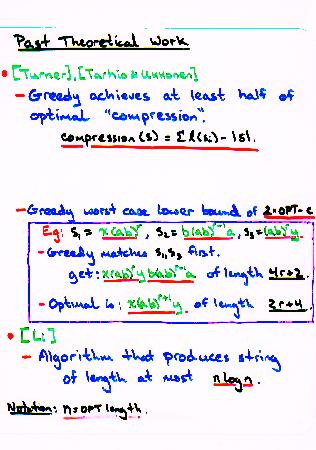 Past Theoretical Work
• [Turner], [Tarhio & Ukkonen]
– Greedy achieves at least half of
optimal "compression".
compression(s) = Σ l(si) - |s|.
– Greedy worst case lower bound of 2·OPT-c
Eg: s1 = x(ab)^r, s2 = b(ab)^r-1 a, s3 = (ab)^r y.
– Greedy matches s1, s3 first.
get: x(ab)^r y b(ab)^r-1 a of length 4r+2.
– Optimal is: x(ab)^r+1 y of length 2r+4
• [Li]
– Algorithm that produces string
of length at most n log n.
Notation: n = OPT length.